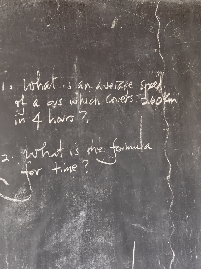 1. What is an average speed
of a bus which covers 240km
in 4 hours?
2. What is the formula
for time?